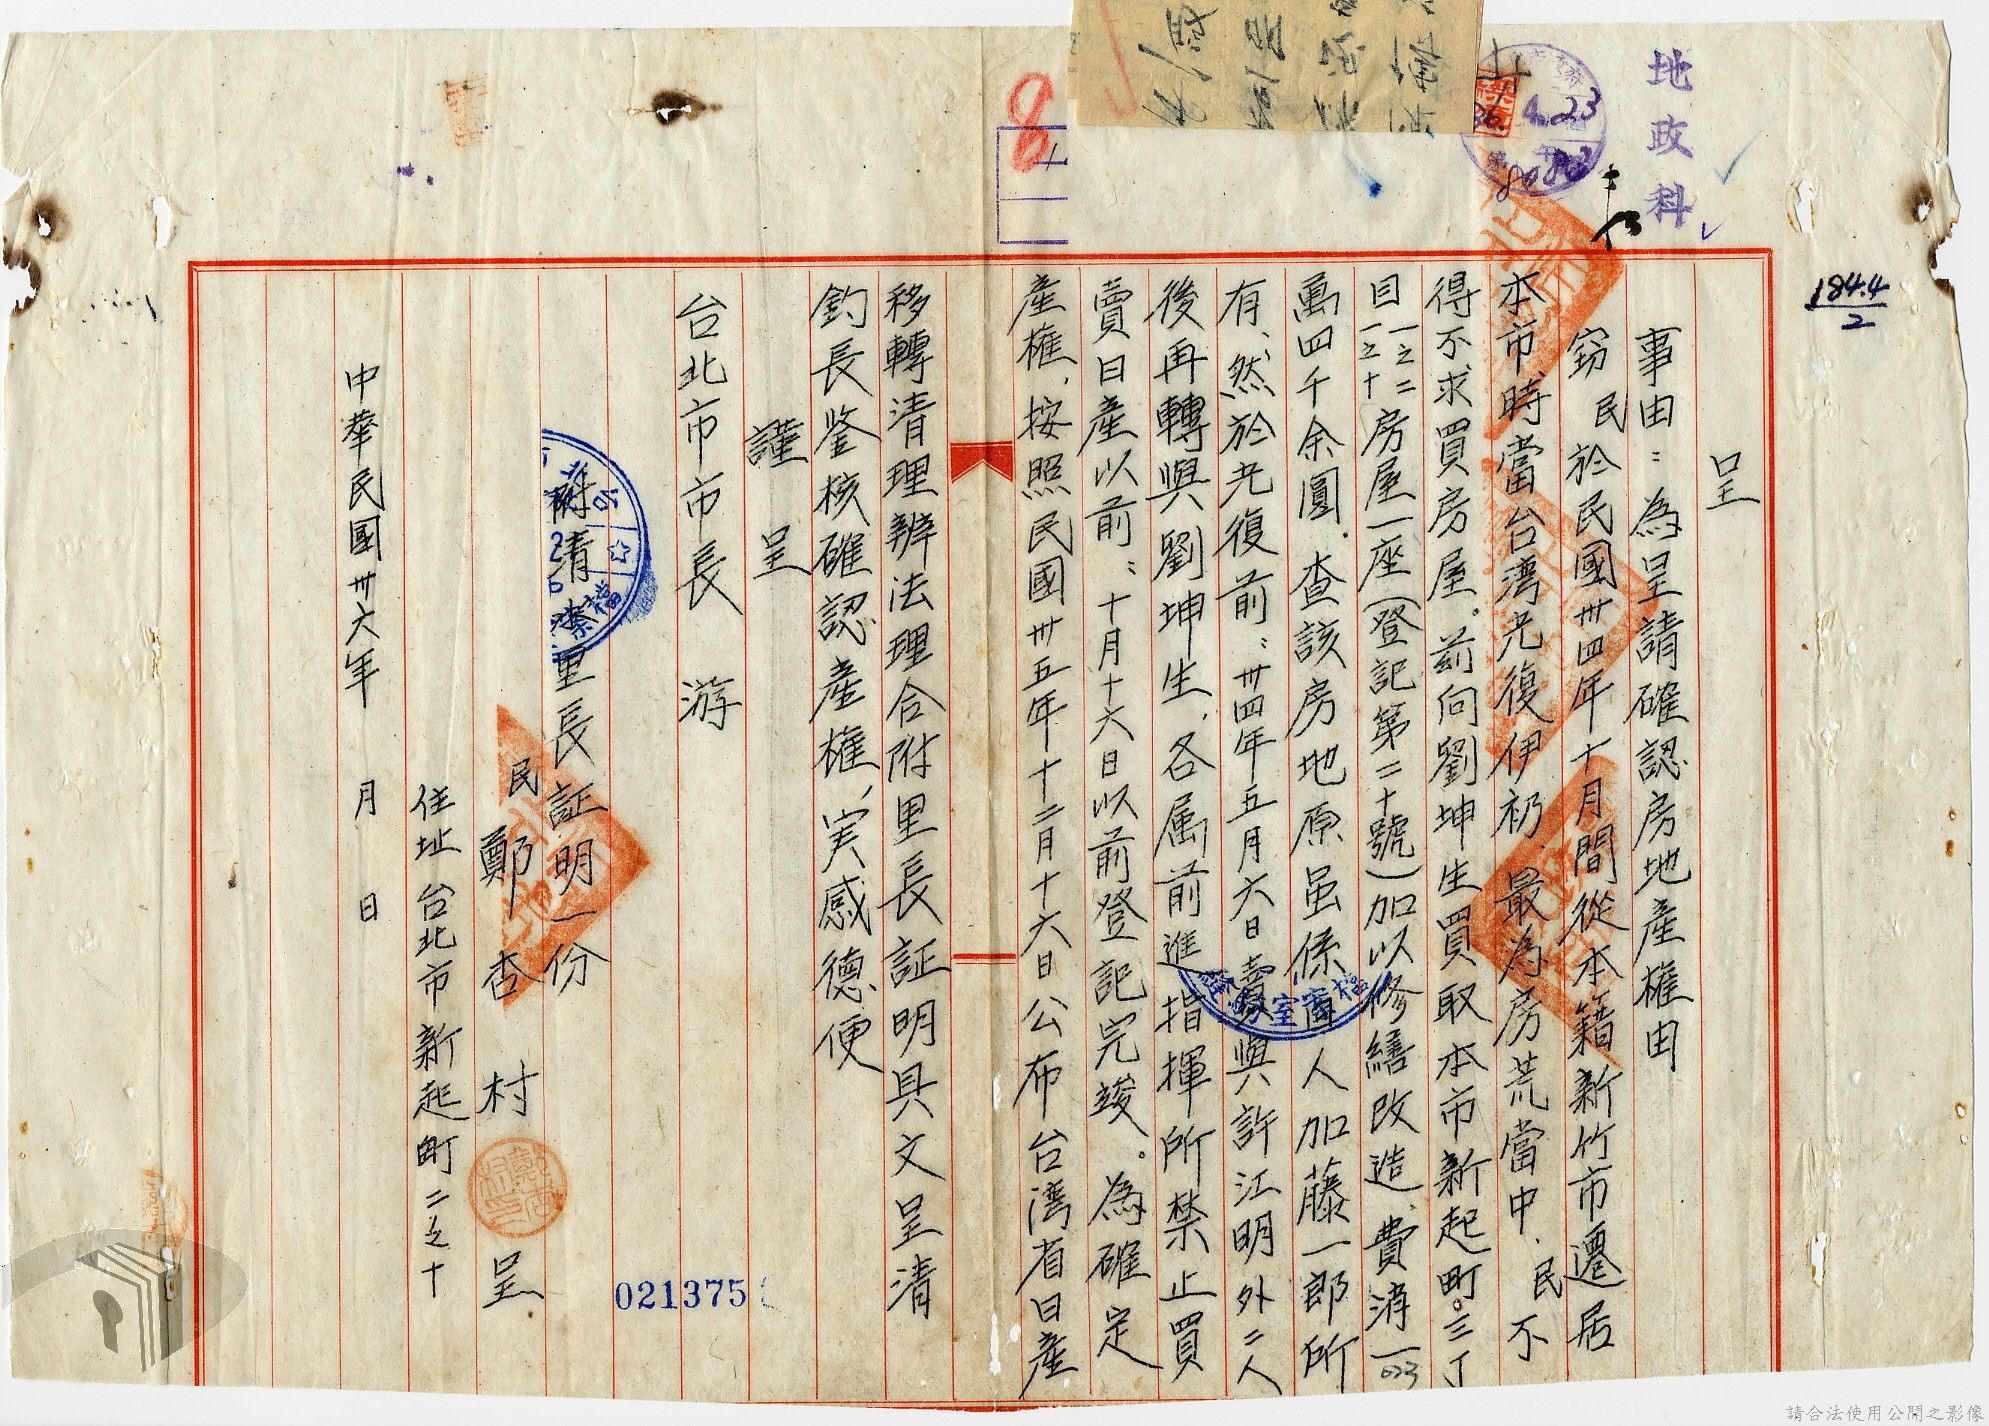 呈
事由：為呈請確認房地產權由
窃民於民國卅四年十月間從本籍新竹市遷居
本市時當台湾光復伊初、最為房荒當中、民不
得不求買房屋。前向劉坤生買取本市新起町三丁
目一之二 一之十房屋一座(登記第二十號)加以修繕改造、費消一
萬四千余圓．查該房地原虽係日人加藤一郎所
有、然於光復前：卅四年五月六日賣與許江明外二人
後再轉與劉坤生、各属前進指揮所禁止買
賣日產以前：十月十六日以前登記完竣。為確定
產権、按照民國卅五年十二月十六日公布台湾省日產
移轉清理辦法理合附里長証明具文呈清
鈞長鉴核確認產権、実感德便
謹呈
台北市市長 游
附清 里長証明一份
民 鄭杏村 呈
住址 台北市新起町二之十
中華民國卅六年 月 日
地政科
36. 4. 23
1844
2
8
021375
請合法使用公開之影像